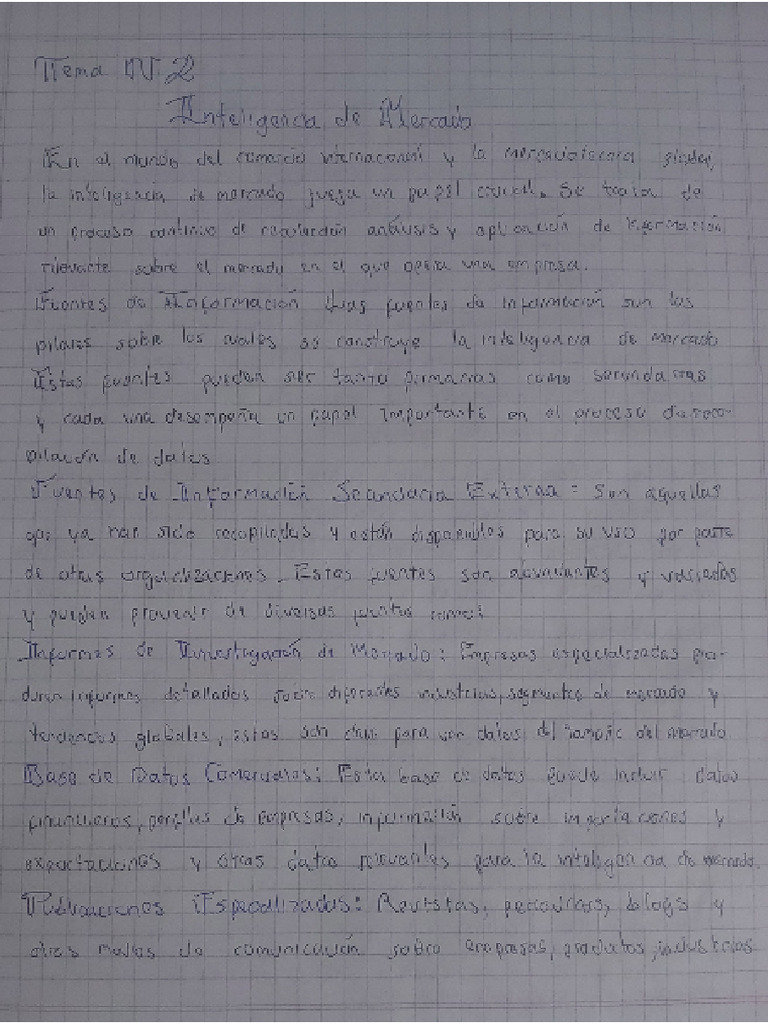 Tema N: 2
Inteligencia de Mercado
En el mundo del comercio internacional y la mercadotecnia global,
la inteligencia de mercado juega un papel crucial. Se trata de
un proceso continuo de recolección análisis y aplicación de información
relevante sobre el mercado en el que opera una empresa.
Fuentes de Información Las fuentes de información son los
pilares sobre los cuales se construye la inteligencia de mercado
Estas fuentes pueden ser tanto primarias como secundarias
y cada una desempeña un papel importante en el proceso de reco-
pilación de datos
Fuentes de Información Secundaria Externa = son aquellas
que ya han sido recopiladas y están disponibles para su uso por parte
de otras organizaciones. Estas fuentes son abundantes y variadas
y pueden provenir de diversas fuentes como:
Informes de Investigación de Mercado: Empresas especializadas pro-
ducen informes detallados sobre diferentes industrias, segmentos de mercado y
tendencias globales, estos son clave para ver datos del tamaño del mercado
Base de Datos Comerciales: Esta base de datos puede incluir datos
financieros, perfiles de empresas, información sobre importaciones y
exportaciones y otros datos relevantes para la inteligencia de mercado.
Publicaciones Especializadas: Revistas, periódicos, blogs y
otros medios de comunicación sobre empresas, productos, industrias